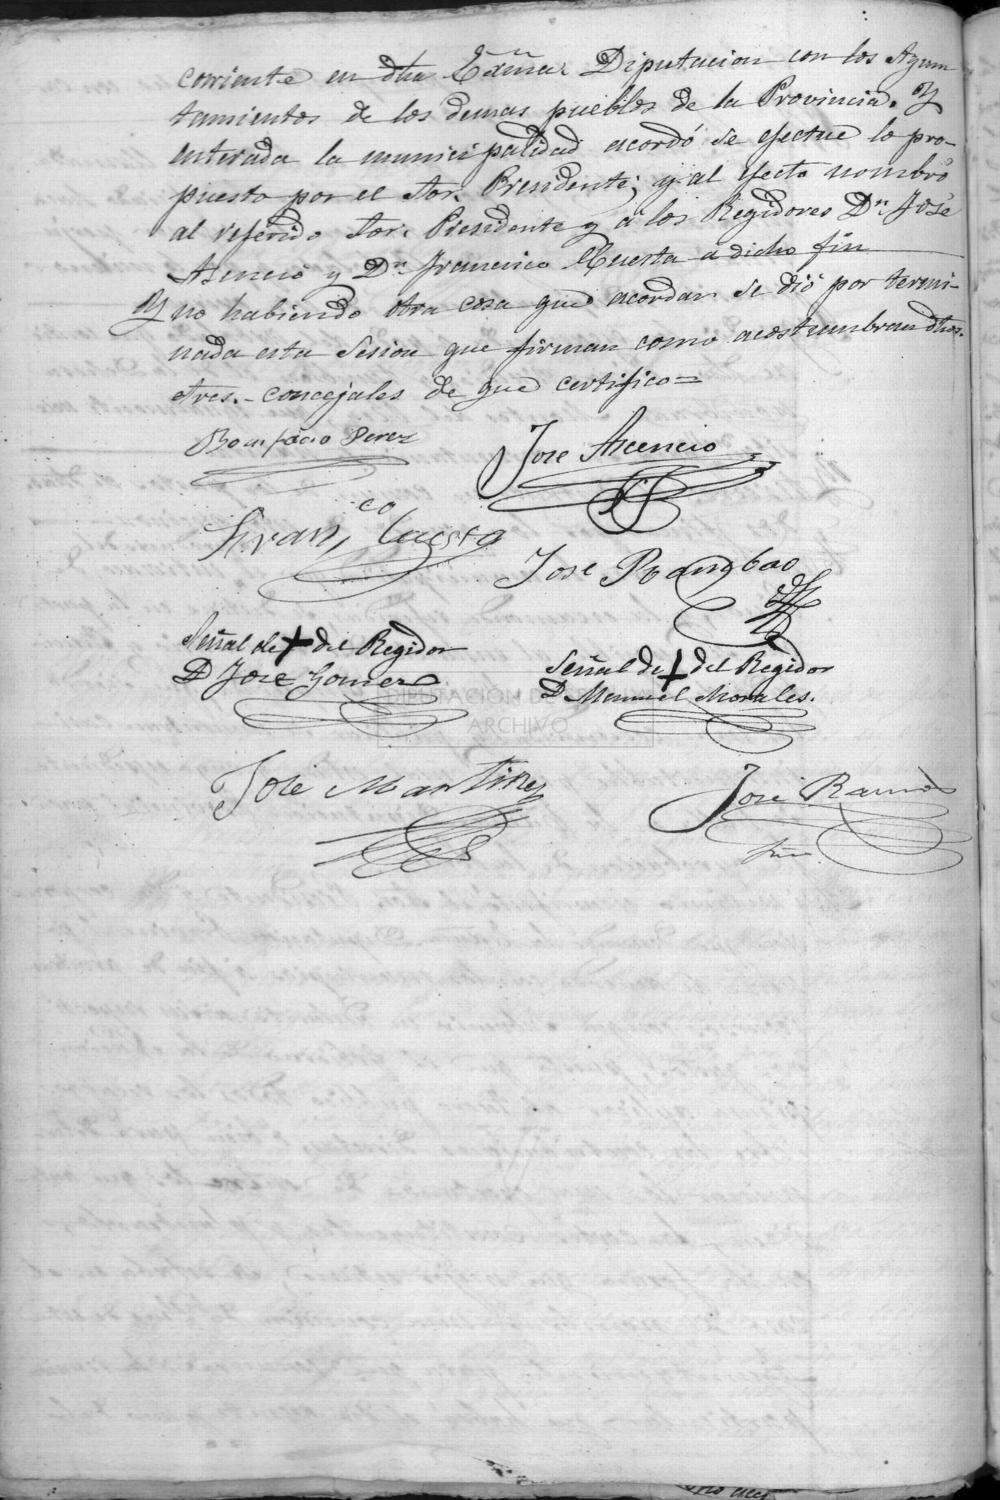 corriente en dha Exma. Diputacion con los Ayun
tamientos de los demas pueblos de la Provincia. Y
enterada la municipalidad acordó se efectue lo pro-
puesto por el Sor. Presidente; y al efecto nombró
al referido Sor. Presidente y á los Regidores Dn. José
Asencio y Dn. Francisco Cuesta a dicho fin
Y no habiendo otra cosa que acordar se dió por termi-
nada esta Sesion que firman como acostumbran dhos.
Sres. concejales de que certifico=
Bonifacio Perez
Jose Ascencio
Fran,co Cuesta
Jose
Señal de + del Regidor
D Jose Gomez
Señal de + del Regidor
D. Manuel Morales.
DIPUTACION DE
ARCHIVO
Jose Martinez
José Ramos